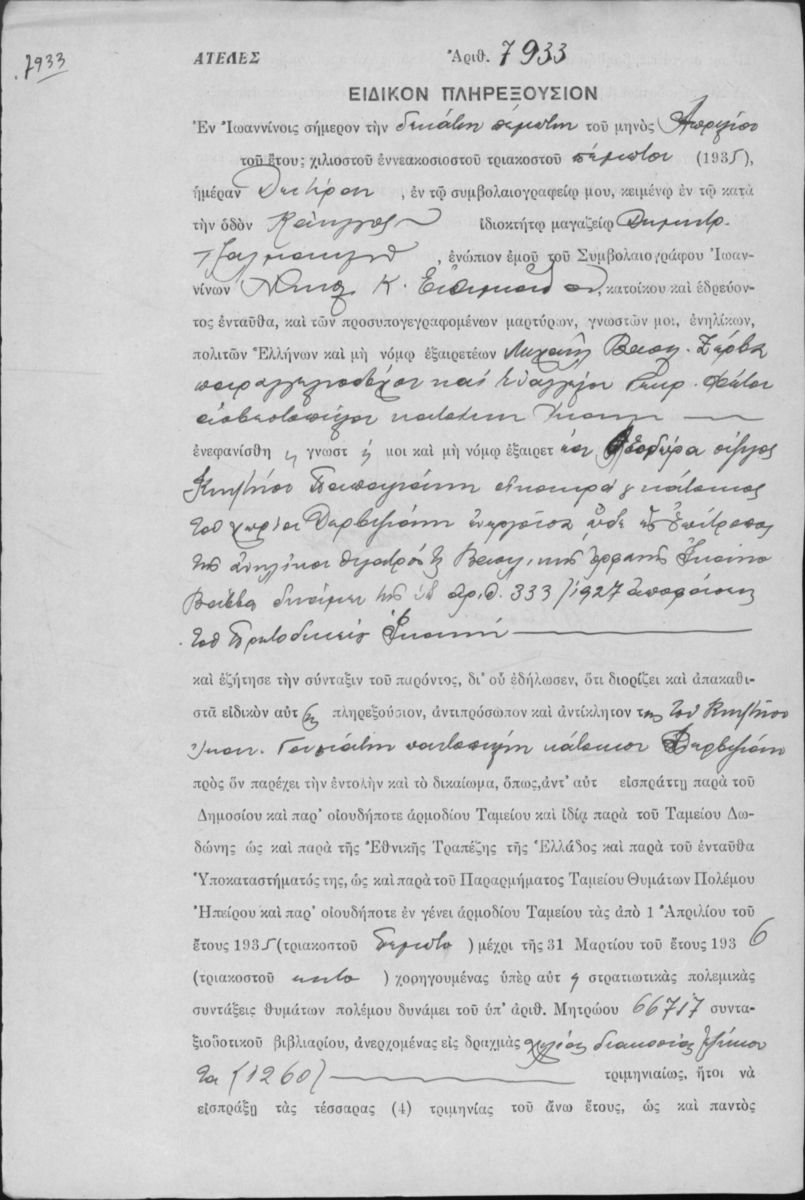 7933
ΑΤΕΛΕΣ Ἀριθ. 7933
ΕΙΔΙΚΟΝ ΠΛΗΡΕΞΟΥΣΙΟΝ
Ἐν Ἰωαννίνοις σήμερον τὴν δεκάτη πέμπτη τοῦ μηνὸς Ἀπριλίου
τοῦ ἔτους χιλιοστοῦ ἐννεακοσιοστοῦ τριακοστοῦ πέμπτου (1935),
ἡμέραν Δευτέραν, ἐν τῷ συμβολαιογραφείῳ μου, κειμένῳ ἐν τῷ κατὰ
τὴν ὁδὸν ἰδιοκτήτῳ μαγαζείῳ
, ἐνώπιον ἐμοῦ τοῦ Συμβολαιογράφου Ἰωαν-
νίνων Κ. , κατοίκου καὶ ἑδρεύον-
τος ἐνταῦθα, καὶ τῶν προσυπογεγραφομένων μαρτύρων, γνωστῶν μοι, ἐνηλίκων,
πολιτῶν Ἑλλήνων καὶ μὴ νόμῳ ἐξαιρετέων Μιχαὴλ Βασιλ. Ζέρβα
παραγγελιοδόχου καὶ Εὐαγγέλου
κατοίκων
ἐνεφανίσθη ἡ γνωστή μοι καὶ μὴ νόμῳ ἐξαιρετέα σύζυγος
οἰκοκυρὰ κάτοικος
τοῦ χωρίου Δερβιζιάνη ἐνεργοῦσα ὧδε ὡς ἐπίτροπος
τῆς ἀνηλίκου θυγατρός της Βασιλικῆς ὀρφανῆς
δυνάμει τῆς ὑπ' ἀριθ. 333/1927 ἀποφάσεως
τοῦ Πρωτοδικείου
καὶ ἐζήτησε τὴν σύνταξιν τοῦ παρόντος, δι' οὗ ἐδήλωσεν, ὅτι διορίζει καὶ ἀποκαθι-
στᾶ εἰδικὸν αὐτῆς πληρεξούσιον, ἀντιπρόσωπον καὶ ἀντίκλητον της τὸν
παντοπώλην κάτοικον Δερβιζιάνη
πρὸς ὃν παρέχει τὴν ἐντολὴν καὶ τὸ δικαίωμα, ὅπως, ἀντ' αὐτ εἰσπράττῃ παρὰ τοῦ
Δημοσίου καὶ παρ' οἱουδήποτε ἁρμοδίου Ταμείου καὶ ἰδίᾳ παρὰ τοῦ Ταμείου Δω-
δώνης ὡς καὶ παρὰ τῆς Ἐθνικῆς Τραπέζης τῆς Ἑλλάδος καὶ παρὰ τοῦ ἐνταῦθα
Ὑποκαταστήματός της, ὡς καὶ παρὰ τοῦ Παραρμήματος Ταμείου Θυμάτων Πολέμου
Ἠπείρου καὶ παρ' οἱουδήποτε ἐν γένει ἁρμοδίου Ταμείου τὰς ἀπὸ 1 Ἀπριλίου τοῦ
ἔτους 1935 (τριακοστοῦ πέμπτου) μέχρι τῆς 31 Μαρτίου τοῦ ἔτους 1936
(τριακοστοῦ ἕκτου) χορηγουμένας ὑπὲρ αὐτῆ στρατιωτικὰς πολεμικὰς
συντάξεις θυμάτων πολέμου δυνάμει τοῦ ὑπ' ἀριθ. Μητρώου 66717 συντα-
ξιοδοτικοῦ βιβλιαρίου, ἀνερχομένας εἰς δραχμὰς χιλίας διακοσίας ἑξήκον
τα (1260) τριμηνιαίως, ἤτοι νὰ
εἰσπράξῃ τὰς τέσσαρας (4) τριμηνίας τοῦ ἄνω ἔτους, ὡς καὶ παντὸς